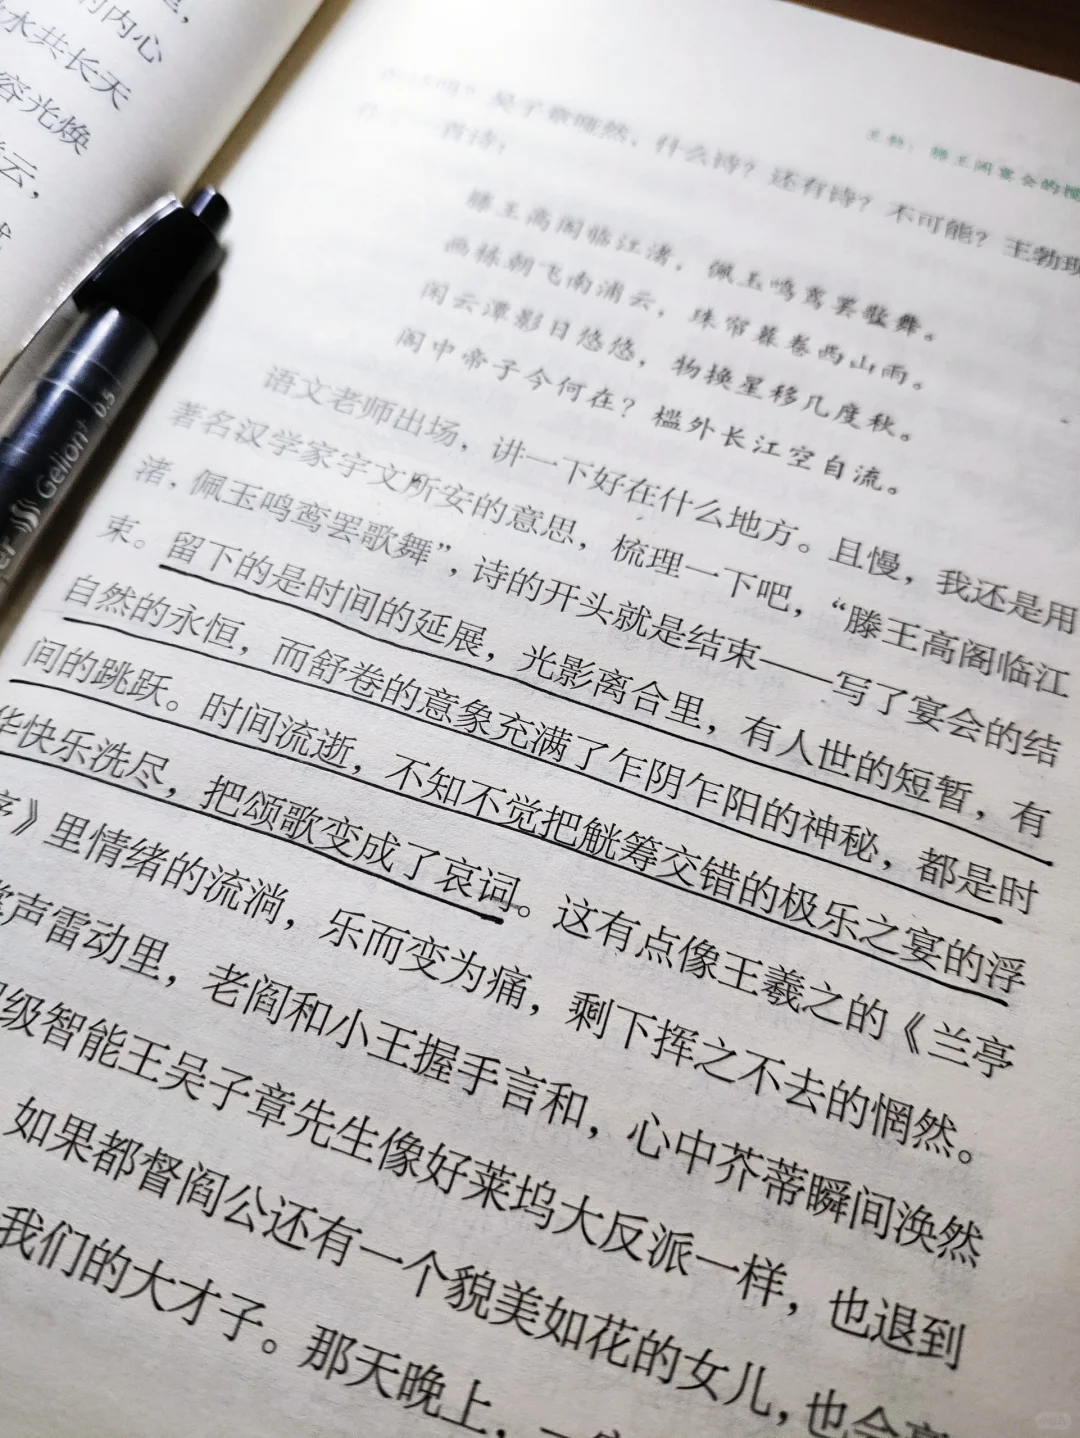 的内心
水共长天
容光焕
云，
王勃：滕王阁宴会的
吴子章哑然，什么诗？还有诗？不可能？王勃现
首诗：
滕王高阁临江渚，佩玉鸣鸾罢歌舞。
画栋朝飞南浦云，珠帘暮卷西山雨。
闲云潭影日悠悠，物换星移几度秋。
阁中帝子今何在？槛外长江空自流。
语文老师出场，讲一下好在什么地方。且慢，我还是用
著名汉学家宇文所安的意思，梳理一下吧，“滕王高阁临江
渚，佩玉鸣鸾罢歌舞”，诗的开头就是结束——写了宴会的结
束。留下的是时间的延展，光影离合里，有人世的短暂，有
自然的永恒，而舒卷的意象充满了乍阴乍阳的神秘，都是时
间的跳跃。时间流逝，不知不觉把觥筹交错的极乐之宴的浮
华快乐洗尽，把颂歌变成了哀词。这有点像王羲之的《兰亭
序》里情绪的流淌，乐而变为痛，剩下挥之不去的惘然。
声雷动里，老阎和小王握手言和，心中芥蒂瞬间涣然
级智能王吴子章先生像好莱坞大反派一样，也退到
如果都督阎公还有一个貌美如花的女儿，也会
我们的大才子。那天晚上，一
Gelion+ 0.5